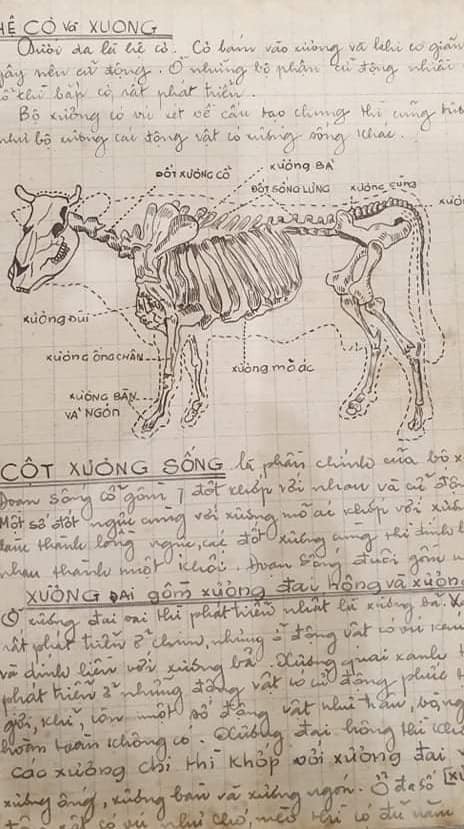 HỆ CƠ Và XƯƠNG
Dưới da là hệ cơ. Cơ bám vào xương và khi cơ giãn
gây nên cử động. Ở những bộ phận cử động nhiều
cơ bắp có rất phát triển.
Bộ xương có vú xét về cấu tạo chung thì cũng
như bộ xương các động vật có xương sống khác.
ĐỐT XƯƠNG CỔ
XƯƠNG BẢ
ĐỐT SỐNG LƯNG
XƯƠNG CÙNG
XƯƠNG ĐÙI
XƯƠNG ỐNG CHÂN
XƯƠNG BÀN
VÀ NGÓN
XƯƠNG MỎ ÁC
CỘT XƯƠNG SỐNG là phần chính của bộ
Đoạn sống cổ gồm 7 đốt khớp với nhau và cử
Một số đốt ngực cùng với xương mỏ ác khớp với
làm thành lồng ngực, các đốt xương cùng thì dính
nhau thành một khối. Đoạn sống đuôi gồm
XƯƠNG ĐAI gồm xương đai hông và xương
Ở xương đai vai thì phát triển nhất là xương bả.
rất phát triển ở chim, nhưng ở động vật có vú
và dính liền với xương bả. Xương quai xanh
phát triển ở những động vật có cử động phức
khỉ, còn một số động vật như
hoàn toàn không có. Xương đai hông thì
các xương chi thì khớp với xương đai
xương ống, xương bàn và xương ngón. Ở đa số
có vú như chó, mèo thì có đủ năm